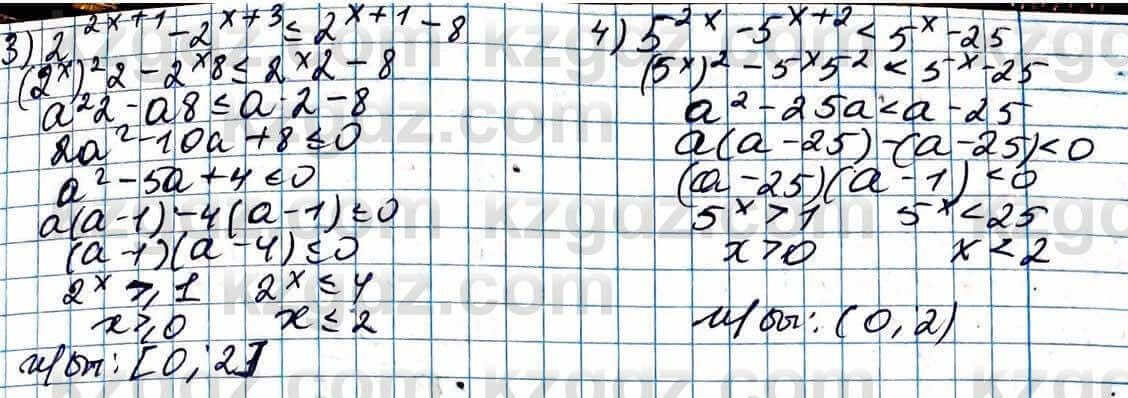 3) 2^{2x+1} - 2^{x+3} ≤ 2^{x+1} - 8
(2^x)^2 2 - 2^x 8 ≤ 2^x 2 - 8
a^2 2 - a8 ≤ a·2 - 8
2a^2 - 10a + 8 ≤ 0
a^2 - 5a + 4 ≤ 0
a(a-1) - 4(a-1) ≤ 0
(a-1)(a-4) ≤ 0
2^x ≥ 1   2^x ≤ 4
x ≥ 0   x ≤ 2
ш/бы: [0; 2]
4) 5^{2x} - 5^{x+2} < 5^x - 25
(5^x)^2 - 5^x 5^2 < 5^x - 25
a^2 - 25a < a - 25
a(a-25) - (a-25) < 0
(a-25)(a-1) < 0
5^x > 1   5^x < 25
x > 0   x < 2
ш/бы: (0; 2)
kzgdz.com